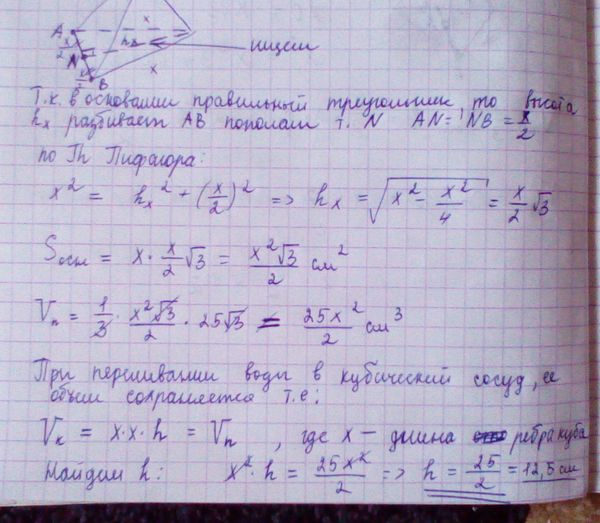 A x
x/2 hx ищем
N
x/2 B x
Т.к. в основании правильный треугольник, то высота
hx разбивает AB пополам т. N AN = NB = x/2
по Th Пифагора:
x² = hx² + (x/2)² => hx = √(x² - x²/4) = x/2 √3
Sосн = x · x/2 √3 = x²√3/2 см²
Vп = 1/3 · x²√3/2 · 25√3 = 25x²/2 см³
При переливании воды в кубический сосуд, ее
объем сохраняется т.е:
Vк = x·x·h = Vп , где x – длина ребра куба
Найдем h: x²·h = 25x²/2 => h = 25/2 = 12,5 см